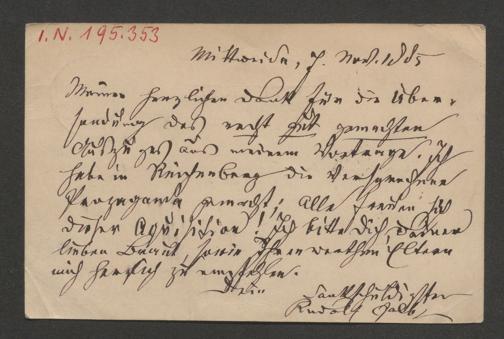 I.N. 195.353
Mittweida, 7. Nov. 1885
Meinen herzlichen Dank für die Über-
sendung des recht gut gemachten
Auszuges aus meinem Vortrage. Ich
habe in Reichenberg die versprochene
Propaganda gemacht; Alle freuen sich
dieser Aquisition! Ich bitte Dich, Deiner
lieben Braut, sowie Ihren werthen Eltern
mich herzlich zu empfehlen.
Dein
dankschuldigster
Rudolf Falb